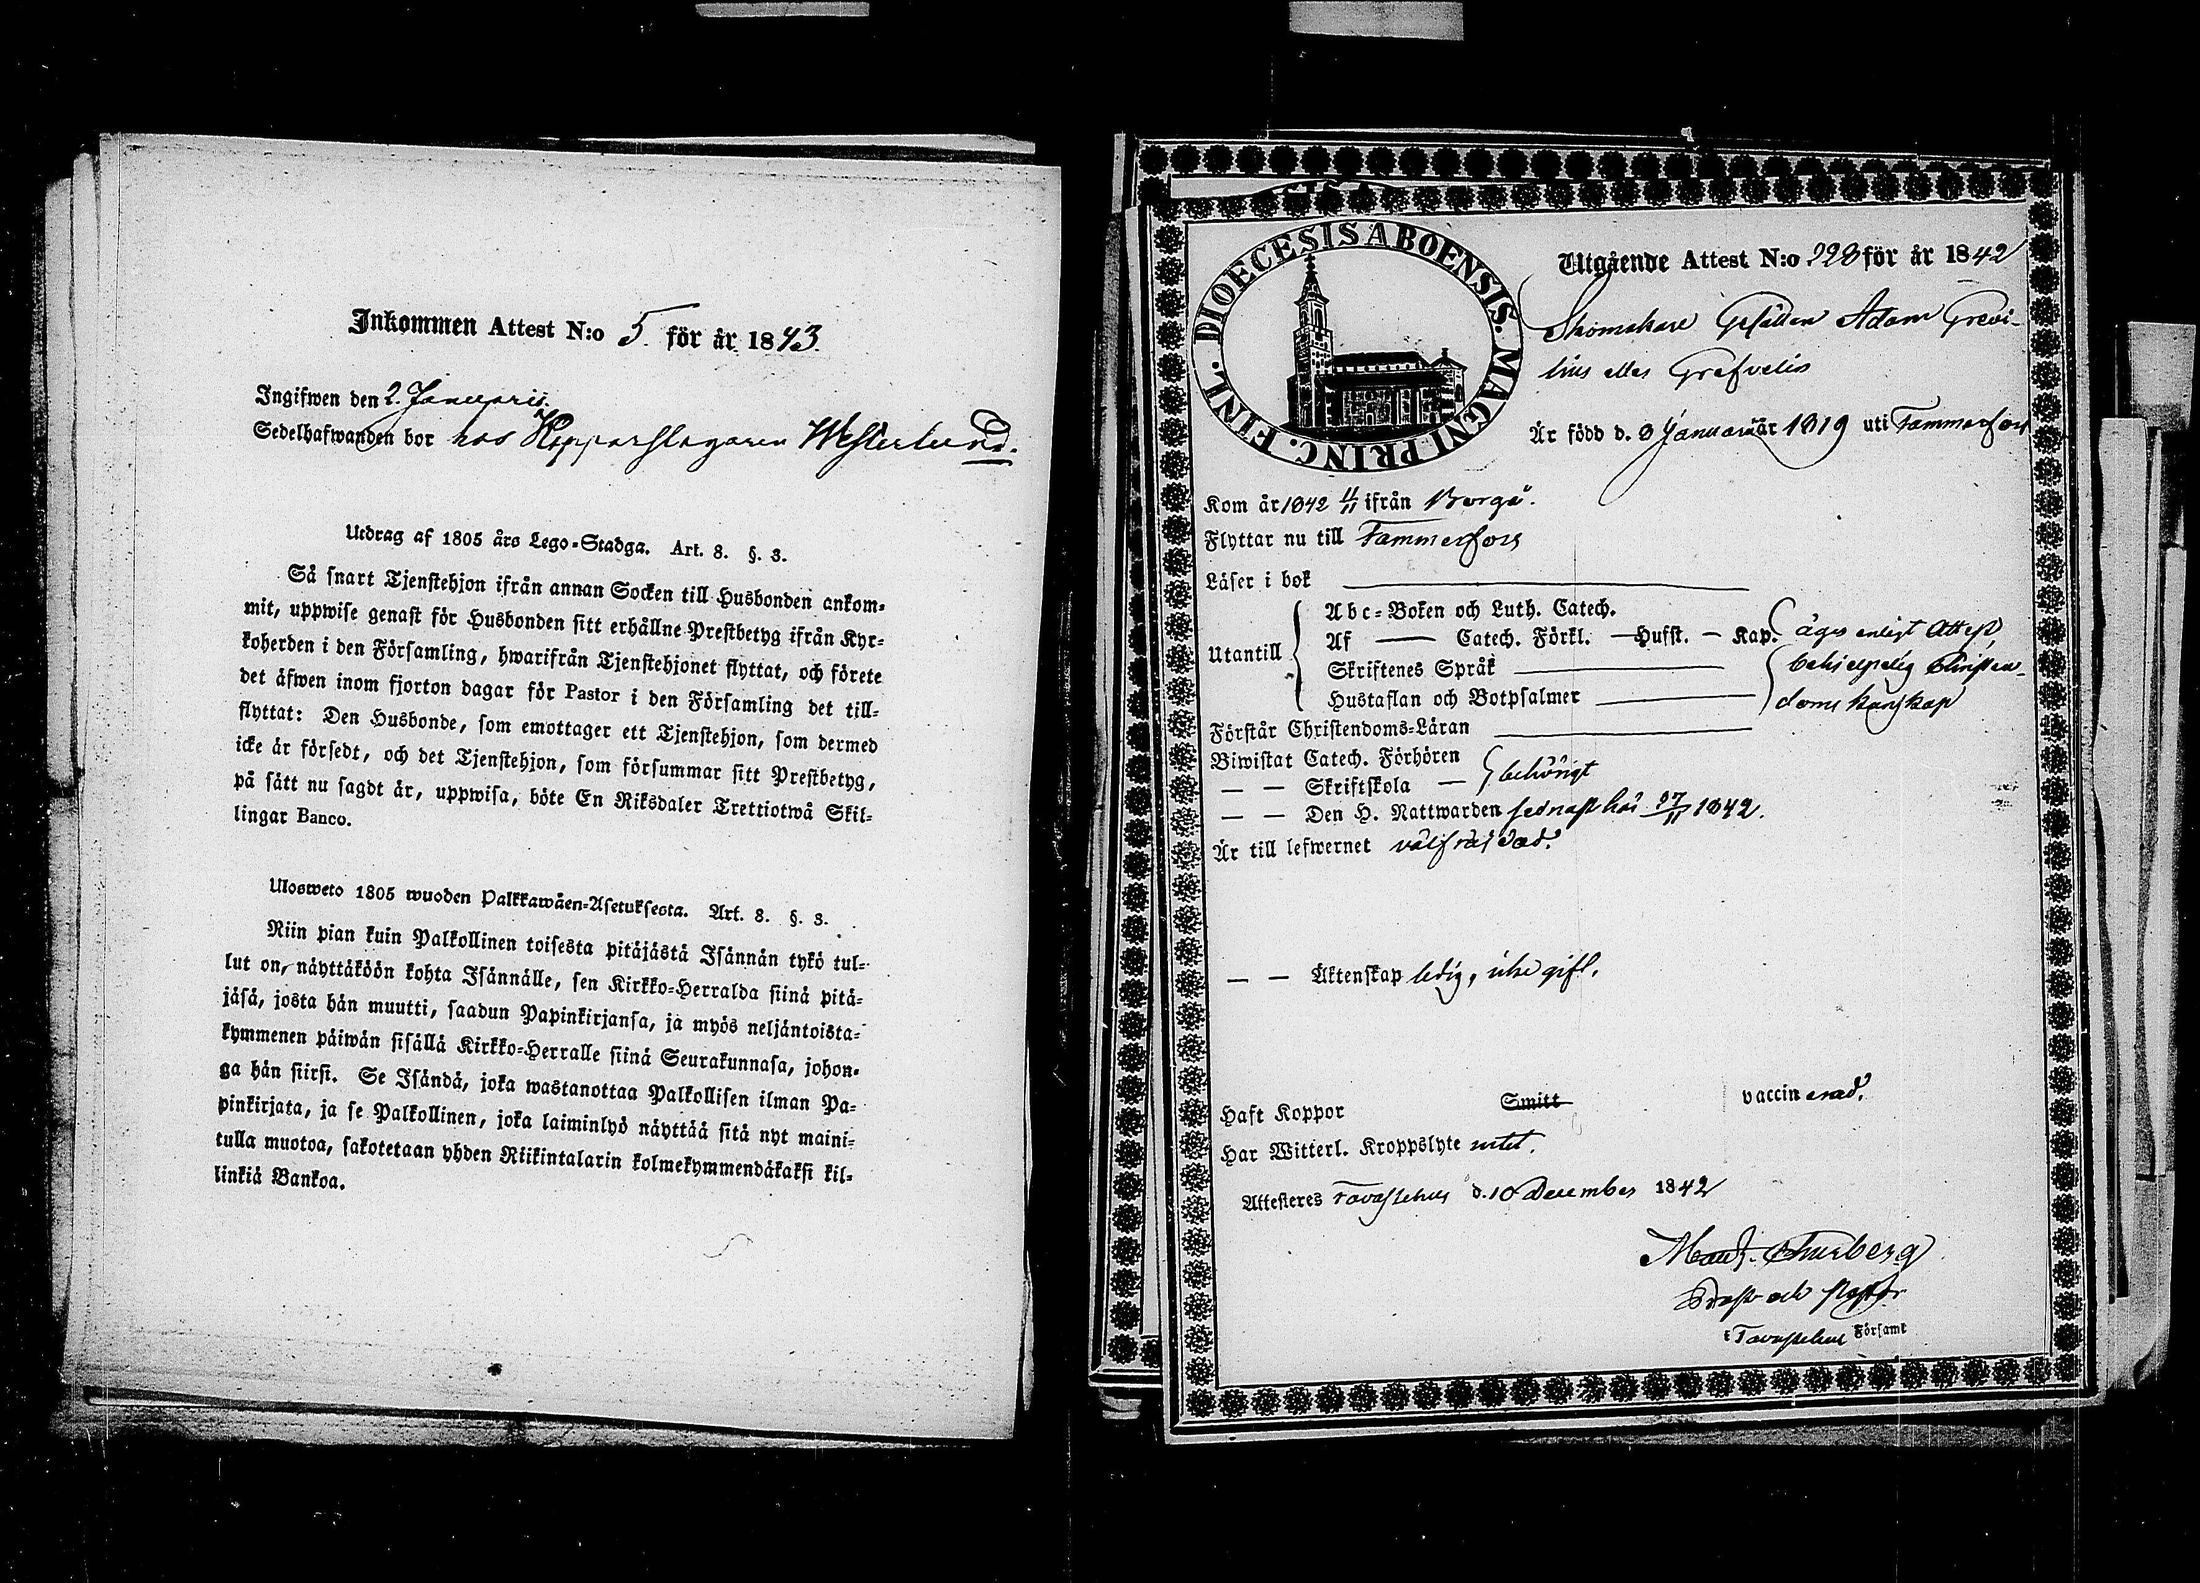 Inkommen Attest N:o 5 för år 1843.
Ingifwen den 2. Januarii.
Sedelhafwanden bor hos Kopparslagaren Westerlund.
Utdrag af 1805 års Lego-Stadga. Art. 8. §. 3.
Så snart Tjenstehjon ifrån annan Socken till Husbonden ankom-
mit, uppwise genast för Husbonden sitt erhållne Prestbetyg ifrån Kyr-
koherden i den Församling, hwarifrån Tjenstehjonet flyttat, och förete
det äfwen inom fjorton dagar för Pastor i den Församling det till-
flyttat: Den Husbonde, som emottager ett Tjenstehjon, som dermed
icke är försedt, och det Tjenstehjon, som försummar sitt Prestbetyg,
på sätt nu sagdt är, uppwisa, böte En Riksdaler Trettiotwå Skil-
lingar Banco.
Ulosweto 1805 wuoden Palkkawäen-Asetuksesta. Art. 8. §. 3.
Niin pian kuin Palkollinen toisesta pitäjästä Isännän tykö tul-
lut on, näyttäköön kohta Isännälle, sen Kirkko-Herralda siinä pitä-
jäsä, josta hän muutti, saadun Papinkirjansa, ja myös neljäntoista-
kymmenen päiwän sisällä Kirkko-Herralle siinä Seurakunnasa, johon-
ga hän siirsi. Se Isändä, joka wastanottaa Palkollisen ilman Pa-
pinkirjata, ja se Palkollinen, joka laiminlyö näyttää sitä nyt maini-
tulla muotoa, sakotetaan yhden Riikintalarin kolmekymmendäkaksi kil-
linkiä Bankoa.
DIOECESIS ABOENSIS. MAGNI PRINC. FINL.
Utgående Attest N:o 228 för år 1842
Skomakare Gesällen Adam Grevi-
lius eller Grefvelis
Är född d. 9 Januarii år 1819 uti Tammerfors
Kom år 1842 4/11 ifrån Borgå.
Flyttar nu till Tammerfors
Läser i bok
Utantill
Abc-Boken och Luth. Catech.
Af Catech. Förkl. — Husst. — Kap. äger enligt Attest
Skriftenes Språk behjelpelig Christen-
Hustaflan och Botpsalmer doms kunskap
Förstår Christendoms-Läran
Biwistat Catech. Förhören
— — Skriftskola — behörigt
— — Den H. Nattwarden sednast här 27/11 1842.
Är till lefwernet välfräjdad.
— — Äktenskap ledig, icke gift.
Haft Koppor Smitt vaccinerad.
Har Witterl. Kroppslyte intet.
Attesteres Tavastehus d. 10 December 1842
Thurberg
Prost och Pastor
i Tavastehus Församl